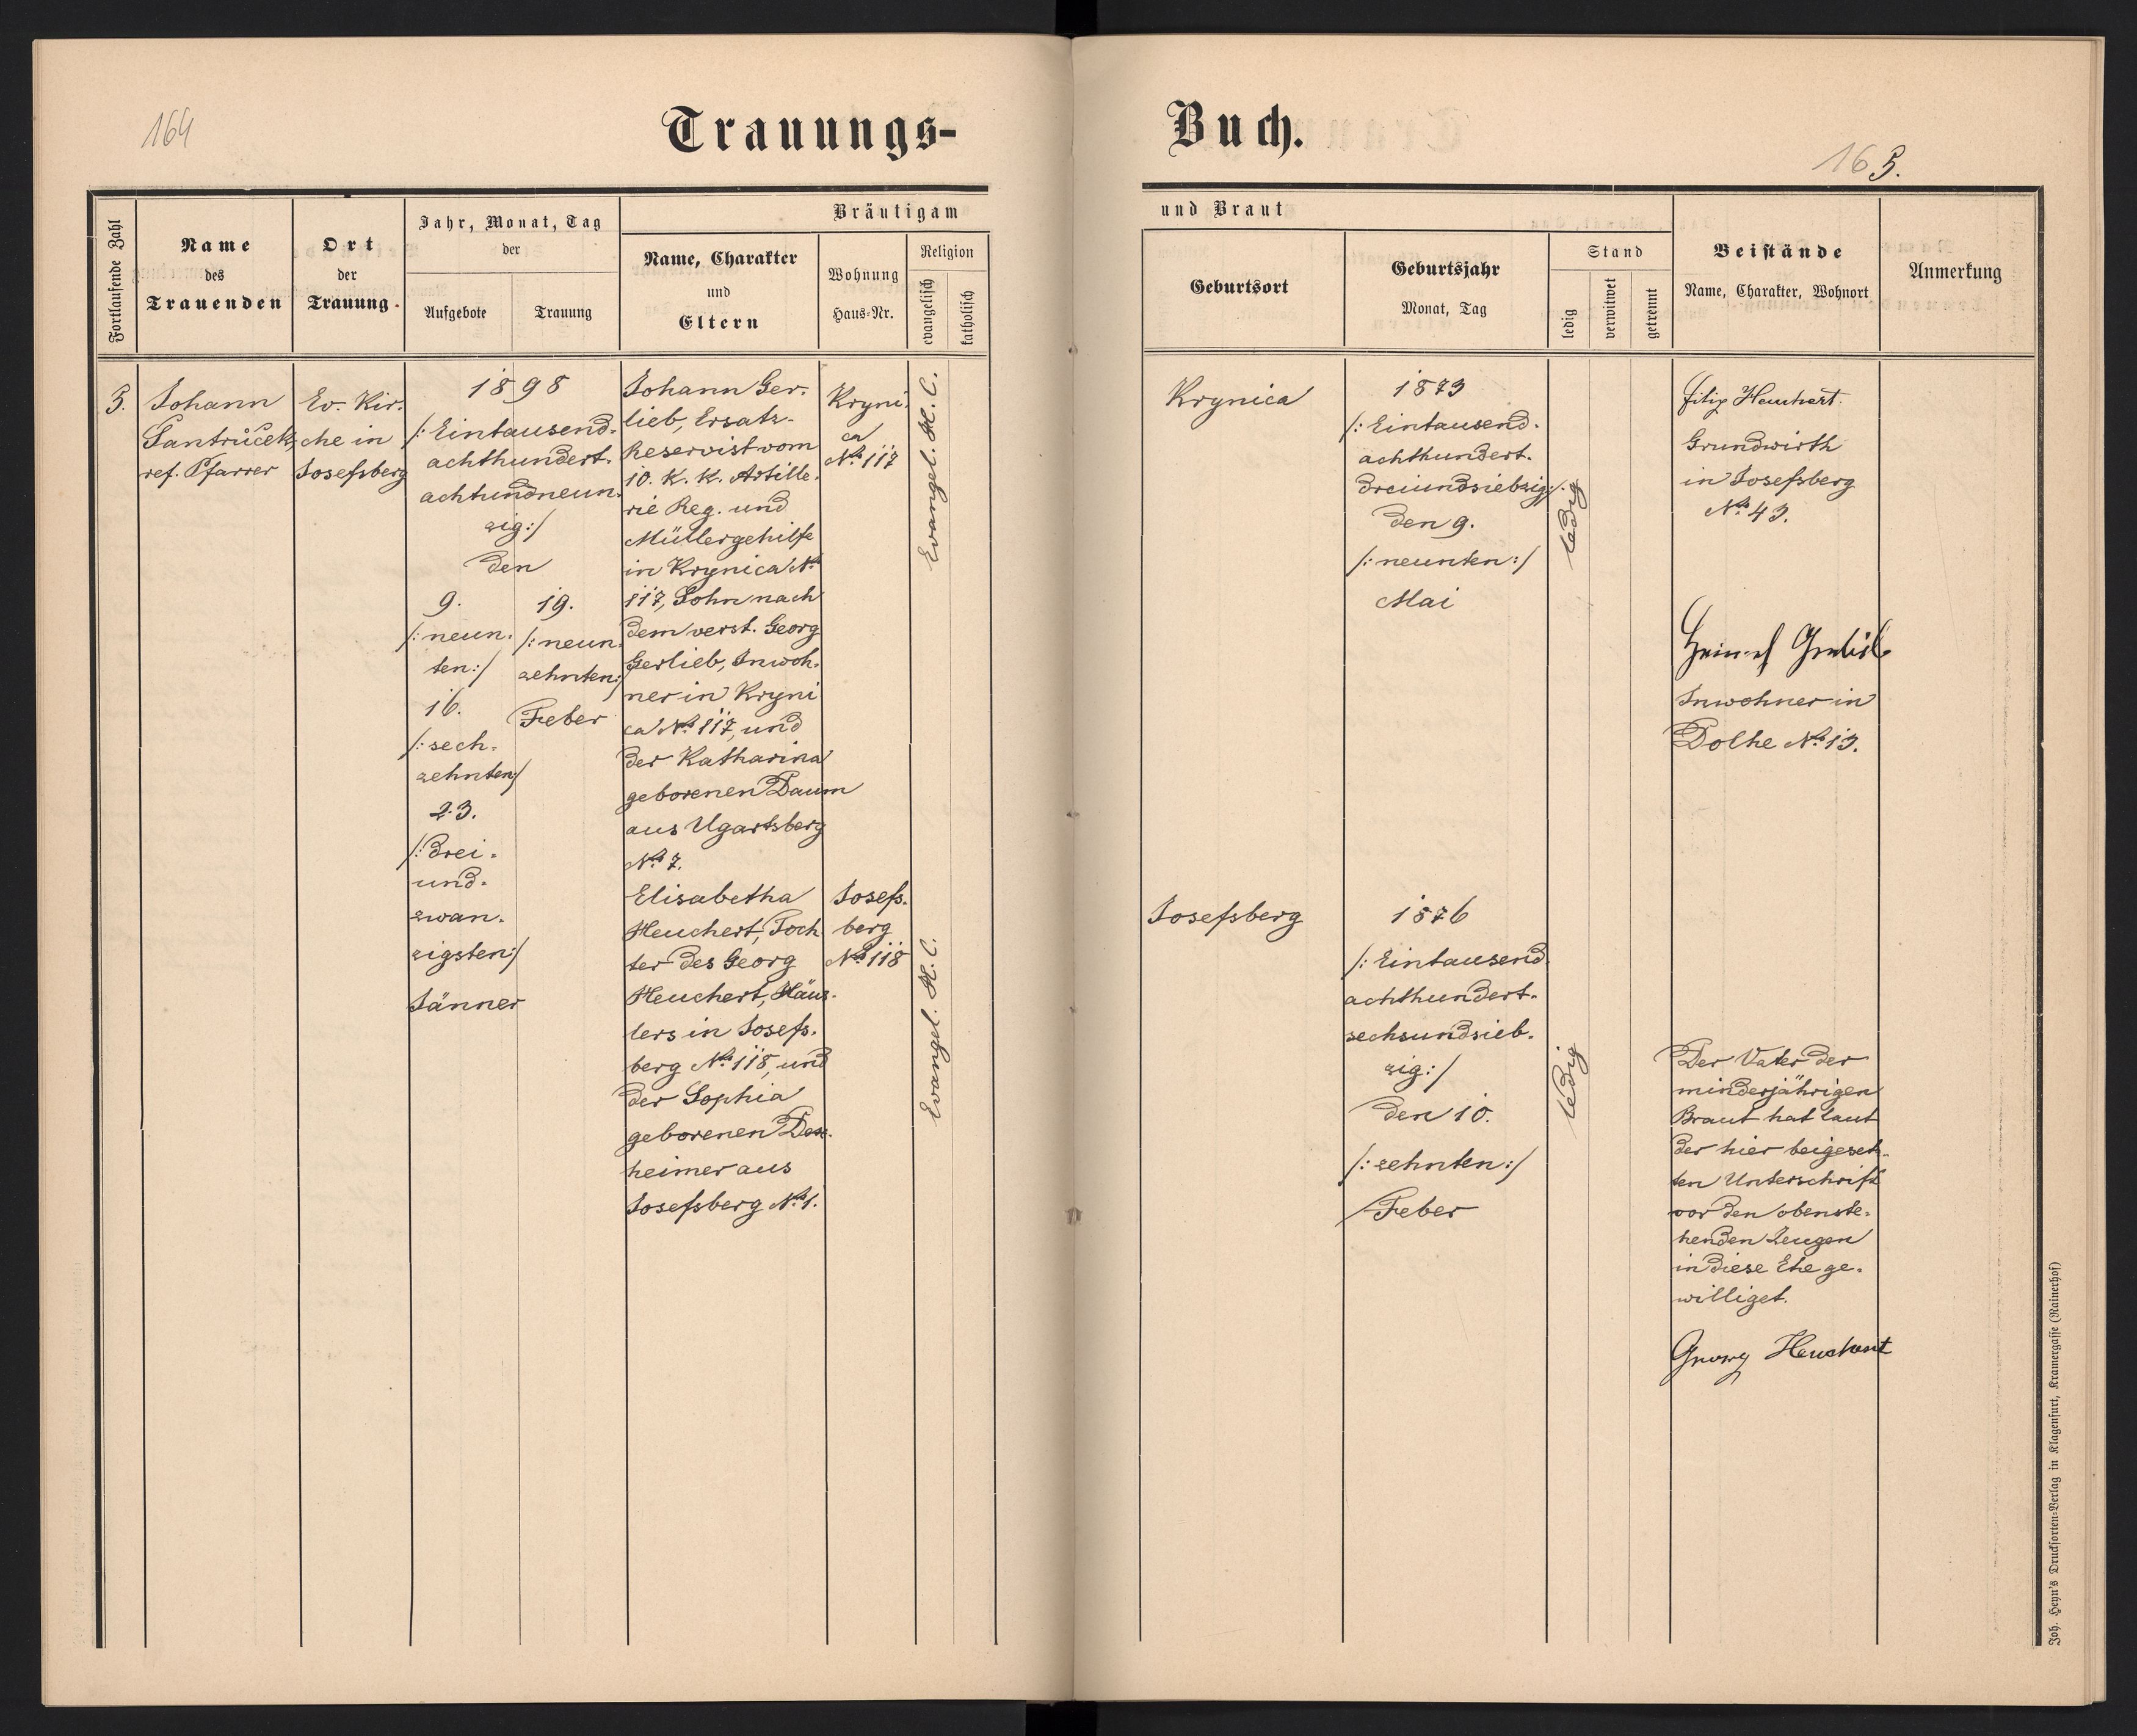 164
Trauungs-
Buch.
165.
Fortlaufende Zahl
Name
des
Trauenden
Ort
der
Trauung.
Jahr, Monat, Tag
der
Aufgebote
Trauung
Bräutigam
Name, Charakter
und
Eltern
Wohnung
Haus-Nr.
Religion
evangelisch
katholisch
und Braut
Geburtsort
Geburtsjahr
Monat, Tag
Stand
ledig
verwitwet
getrennt
Beistände
Name, Charakter, Wohnort
Anmerkung
Johann
Pantrůček,
ref. Pfarrer
Ev. Kir-
che in
Josefsberg
1898
/: Eintausend-
achthundert-
achtundneun-
zig :/
den
9.
/: neun-
ten :/
16.
/: sech-
zehnten :/
23.
/: drei-
und-
zwan-
zigsten :/
Jänner
19.
/: neun-
zehnten :/
Feber
Johann Ger-
lieb, Ersatz-
Reservist vom
10. K. K. Artille-
rie Reg. und
Müllergehilfe
in Krynica No
117, Sohn nach
dem verst. Georg
Gerlieb, Inwoh-
ner in Kryni
ca No 117, und
der Katharina
geborenen Daum
aus Ugartsberg
No 7.
Kryni-
ca
No 117
Evangel. H. C.
Krynica
1873
/: Eintausend-
achthundert-
dreiundsiebzig :/
den 9.
/: neunten :/
Mai
ledig
Filip Heuchert.
Grundwirth
in Josefsberg
No 43.
Inwohner in
Dolhe No 13.
Elisabetha
Heuchert, Toch
ter des Georg
Heuchert, Häus-
lers in Josefs-
berg No 118, und
der Sophia
geborenen
heimer aus
Josefsberg No 1.
Josefs-
berg
No 118
Evangel. H. C.
Josefsberg
1876
/: Eintausend
achthundert-
sechsundsieb-
zig :/
den 10.
/: zehnten :/
Feber
ledig
Der Vater der
minderjährigen
Braut hat laut
der hier beigesetz-
ten Unterschrift
vor den obenste-
henden Zeugen
in diese Ehe ge-
williget.
Georg Heuchert
Joh. Heyn's Drucksorten-Verlag in Klagenfurt, Kramergasse (Rainerhof)